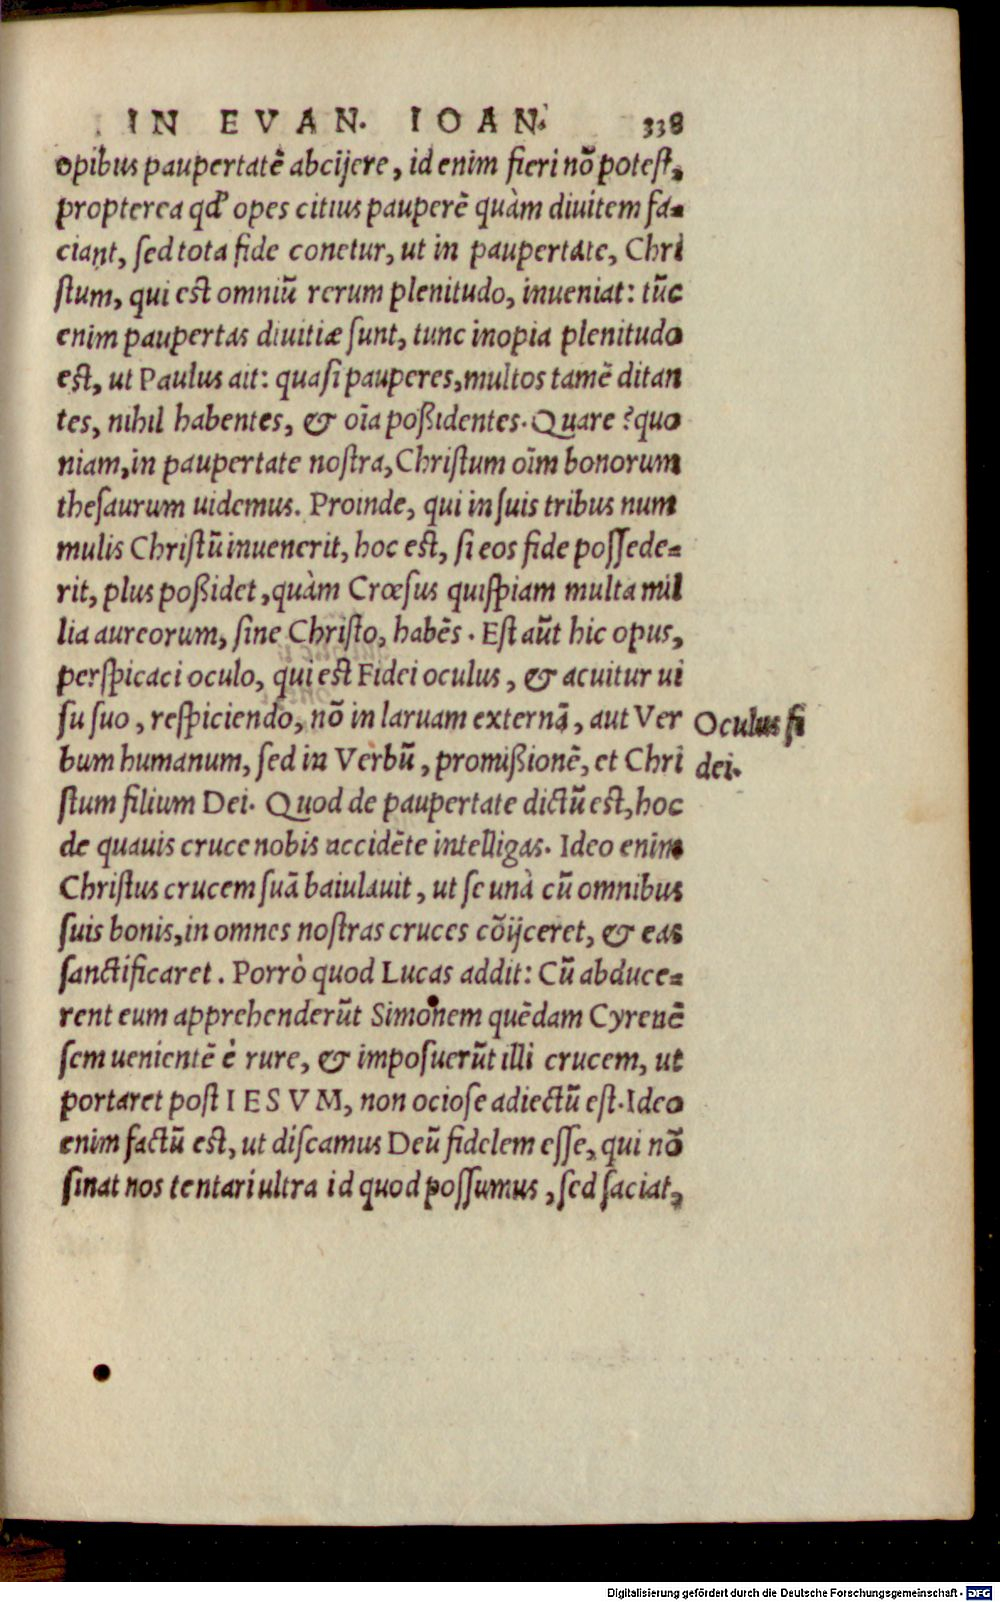 IN EVAN. IOAN. 338
opibus paupertatẽ abcijere, id enim fieri nõ potest,
propterea qd' opes citius pauperẽ quàm diuitem fa-
ciant, sed tota fide conetur, ut in paupertate, Chri
stum, qui est omniũ rerum plenitudo, inueniat: tũc
enim paupertas diuitiæ sunt, tunc inopia plenitudo
est, ut Paulus ait: quasi pauperes, multos tamẽ ditan
tes, nihil habentes, & oĩa poßidentes. Quare? quo
niam, in paupertate nostra, Christum oĩm bonorum
thesaurum uidemus. Proinde, qui in suis tribus num
mulis Christũ inuenerit, hoc est, si eos fide possede-
rit, plus poßidet, quàm Crœsus quispiam multa mil
lia aureorum, sine Christo, habẽs. Est aũt hic opus,
perspicaci oculo, qui est Fidei oculus, & acuitur ui
su suo, respiciendo, nõ in laruam externã, aut Ver
Oculus fi
bum humanum, sed in Verbũ, promißionẽ, et Chri
dei.
stum filium Dei. Quod de paupertate dictũ est, hoc
de quauis cruce nobis accidẽte intelligas. Ideo enim
Christus crucem suã baiulauit, ut se unà cũ omnibus
suis bonis, in omnes nostras cruces cõijceret, & eas
sanctificaret. Porrò quod Lucas addit: Cũ abduce-
rent eum apprehenderũt Simonem quẽdam Cyrenẽ
sem uenientẽ è rure, & imposuerũt illi crucem, ut
portaret post IESVM, non ociose adiectũ est. Ideo
enim factũ est, ut discamus Deũ fidelem esse, qui nõ
sinat nos tentari ultra id quod possumus, sed faciat,
Digitalisierung gefördert durch die Deutsche Forschungsgemeinschaft - DFG